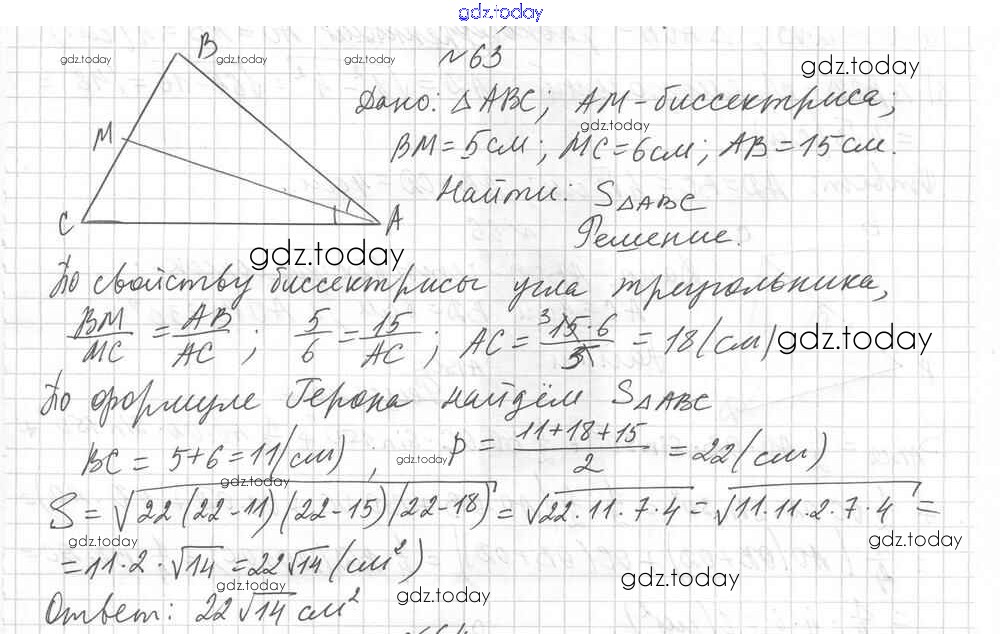 gdz.today
№63
B
gdz.today gdz.today gdz.today gdz.today
Дано: △ABC; AM-биссектриса;
gdz.today
M
BM=5см; MC=6см; AB=15см.
Найти: S△ABC
C
A
Решение.
gdz.today
По свойству биссектрисы угла треугольника,
BM/MC = AB/AC; 5/6 = 15/AC; AC = 3 15·6/5 = 18(см) gdz.today
По формуле Герона найдём S△ABC
BC = 5+6=11(см); gdz.today p = 11+18+15/2 = 22(см)
gdz.today
S = √22(22-11)(22-15)(22-18) = √22·11·7·4 = √11·11·2·7·4 =
gdz.today gdz.today
=11·2·√14 =22√14(см²)
gdz.today gdz.today gdz.today
Ответ: 22√14 см²